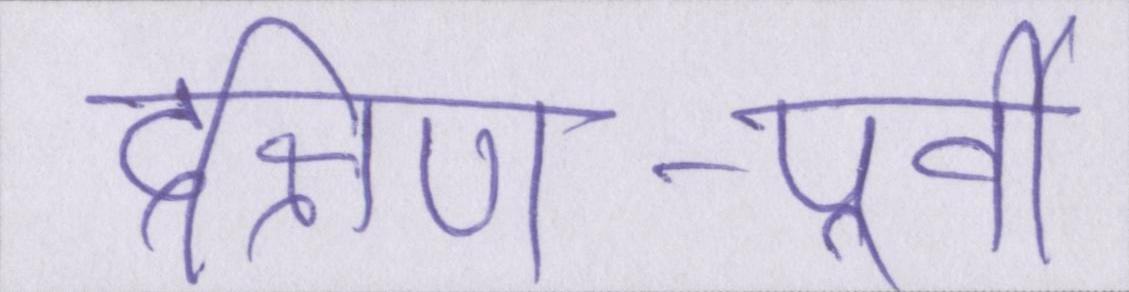 दक्षिण-पूर्वी